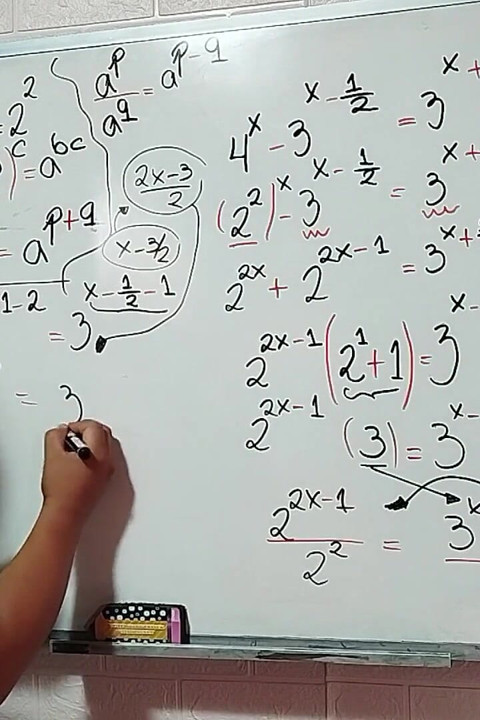 = 2^2
a^p/a^q = a^(p-q)
)^c = a^(bc)
= a^(p+q)
(2x-3)/2
x-3/2
1-2
x - 1/2 - 1
= 3
= 3
4^x - 3^(x-1/2) = 3^(x+
(2^2)^x - 3^(x-1/2) = 3^(x+
2^(2x) + 2^(2x-1) = 3^(x+
2^(2x-1) (2^1+1) = 3^(x-
2^(2x-1) (3) = 3^(x-
2^(2x-1)/2^2 = 3^x